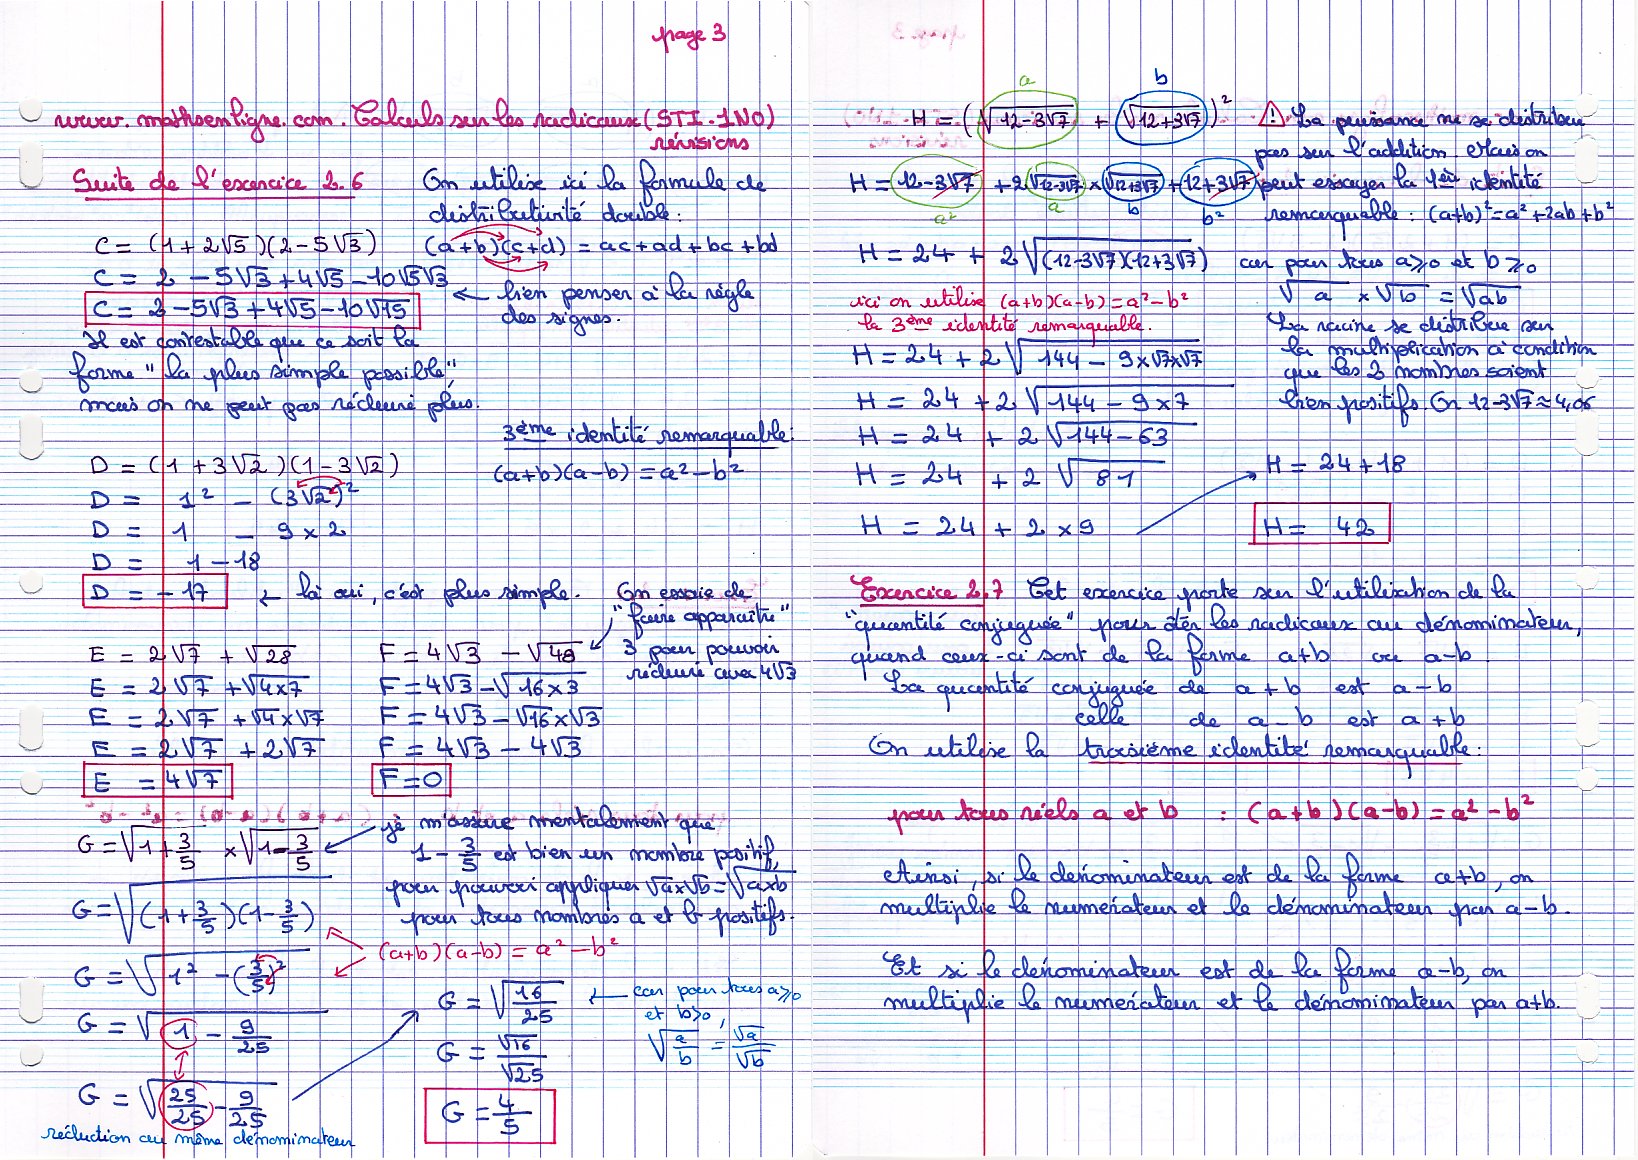 page 3
www.mathsenligne.com. Calculs sur les radicaux (STI.1N0)
révisions
Suite de l'exercice 2.6
On utilise ici la formule de
distributivité double:
C = (1+2√5)(2-5√3) (a+b)(c+d) = ac+ad+bc+bd
C = 2 -5√3+4√5-10√5√3
C = 2-5√3+4√5-10√15
← bien penser à la règle
des signes.
Il est contestable que ce soit la
forme "la plus simple possible"
mais on ne peut pas réduire plus.
3ème identité remarquable:
(a+b)(a-b) = a²-b²
D = (1+3√2)(1-3√2)
D = 1² - (3√2)²
D = 1 - 9×2
D = 1-18
D = -17 ← là oui, c'est plus simple.
On essaie de
"faire apparaître"
3 pour pouvoir
réduire avec 4√3
E = 2√7 + √28
E = 2√7 + √4×7
E = 2√7 + √4×√7
E = 2√7 + 2√7
E = 4√7
F = 4√3 - √48
F = 4√3 - √16×3
F = 4√3 - √16×√3
F = 4√3 - 4√3
F = 0
G = √(1+3/5) × √(1-3/5)
je m'assure mentalement que
1-3/5 est bien un nombre positif,
pour pouvoir appliquer √a×√b = √a×b
pour tous nombres a et b positifs.
G = √((1+3/5)(1-3/5))
(a+b)(a-b) = a²-b²
G = √(1²-(3/5)²)
G = √(1-9/25)
G = √(25/25-9/25)
réduction au même dénominateur
G = √(16/25) ← car pour tous a⩾0
et b>0,
√(a/b) = √a/√b
G = √16/√25
G = 4/5
a b
H = (√12-3√7 + √12+3√7)²
⚠ La puissance ne se distribue
pas sur l'addition. Mais on
peut essayer la 1ère identité
remarquable: (a+b)²=a²+2ab+b²
H = 12-3√7 + 2√12-3√7 × √12+3√7 + 12+3√7
a² a b b²
H = 24 + 2√(12-3√7)(12+3√7)
car pour tous a⩾0 et b⩾0
√a × √b = √ab
La racine se distribue sur
la multiplication à condition
que les 2 nombres soient
bien positifs. Or 12-3√7≈4,06
ici on utilise (a+b)(a-b)=a²-b²
la 3ème identité remarquable.
H = 24 + 2√144 - 9×√7×√7
H = 24 + 2√144 - 9×7
H = 24 + 2√144-63
H = 24 + 2√81
H = 24 + 2×9
H = 24+18
H = 42
Exercice 2.7 Cet exercice porte sur l'utilisation de la
"quantité conjuguée" pour ôter les radicaux au dénominateur,
quand ceux-ci sont de la forme a+b ou a-b
La quantité conjuguée de a+b est a-b
celle de a-b est a+b
On utilise la troisième identité remarquable:
pour tous réels a et b : (a+b)(a-b) = a²-b²
Ainsi, si le dénominateur est de la forme a+b, on
multiplie le numérateur et le dénominateur par a-b.
Et si le dénominateur est de la forme a-b, on
multiplie le numérateur et le dénominateur par a+b.